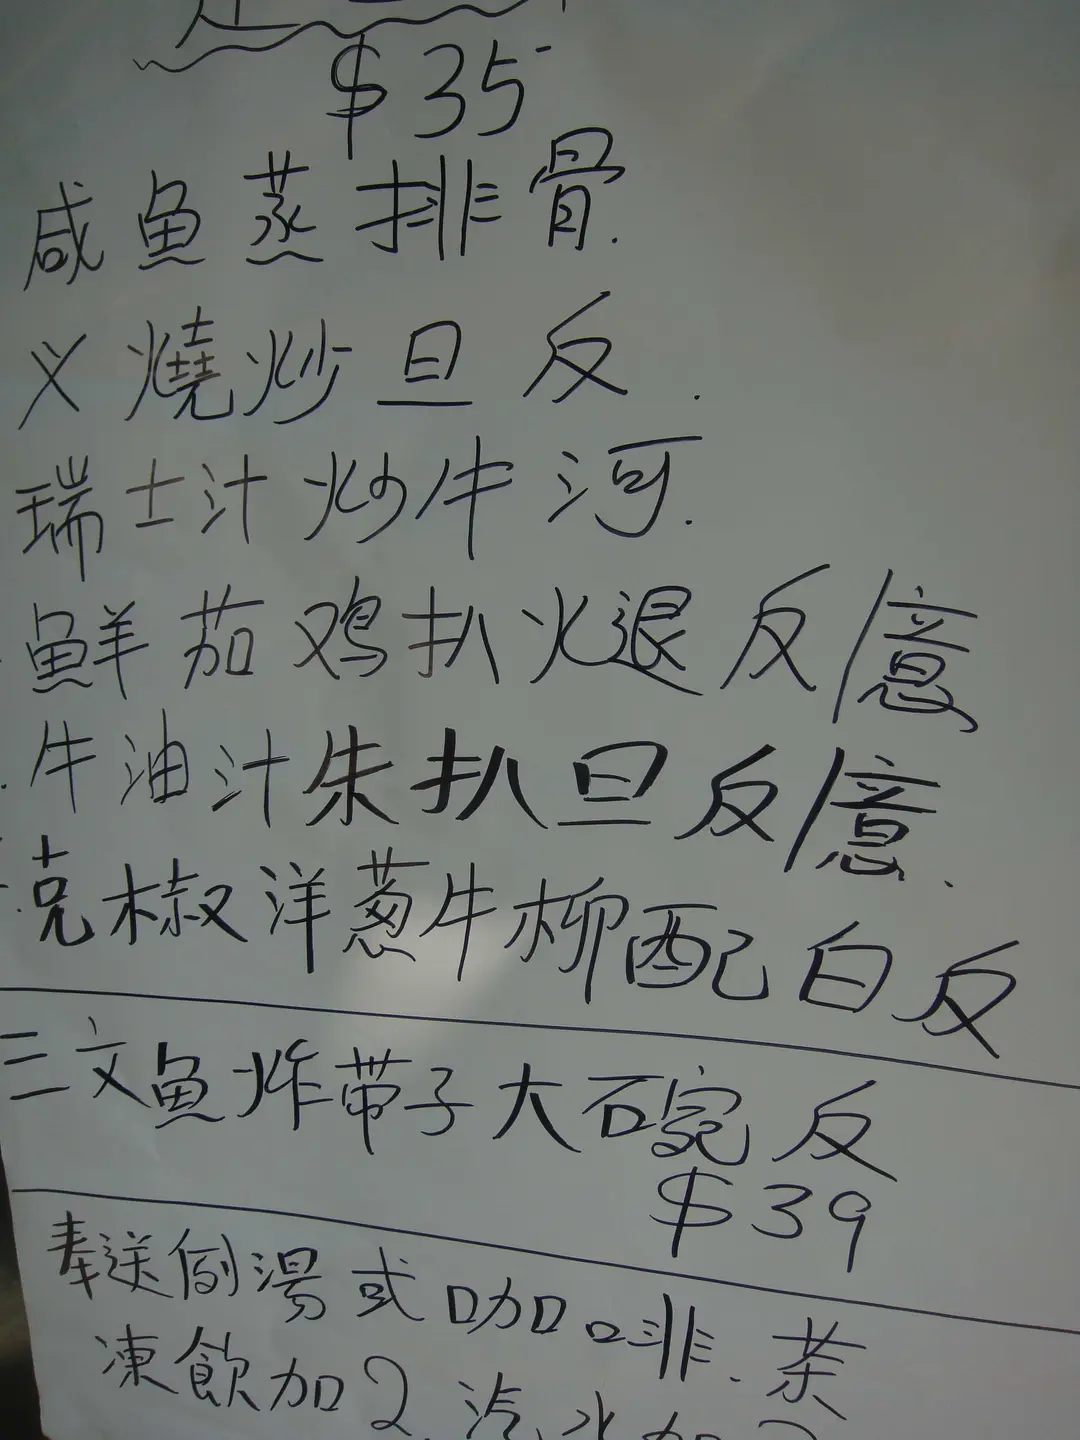 $35
咸魚蒸排骨.
义燒炒旦反.
瑞士汁炒牛河.
鮮茄鸡扒火退反/意
牛油汁朱扒旦反/意.
克椒洋葱牛柳配白反
三文魚炸带子大石宛反
$39
奉送例湯或咖啡.茶
凍飲加2.汽水加